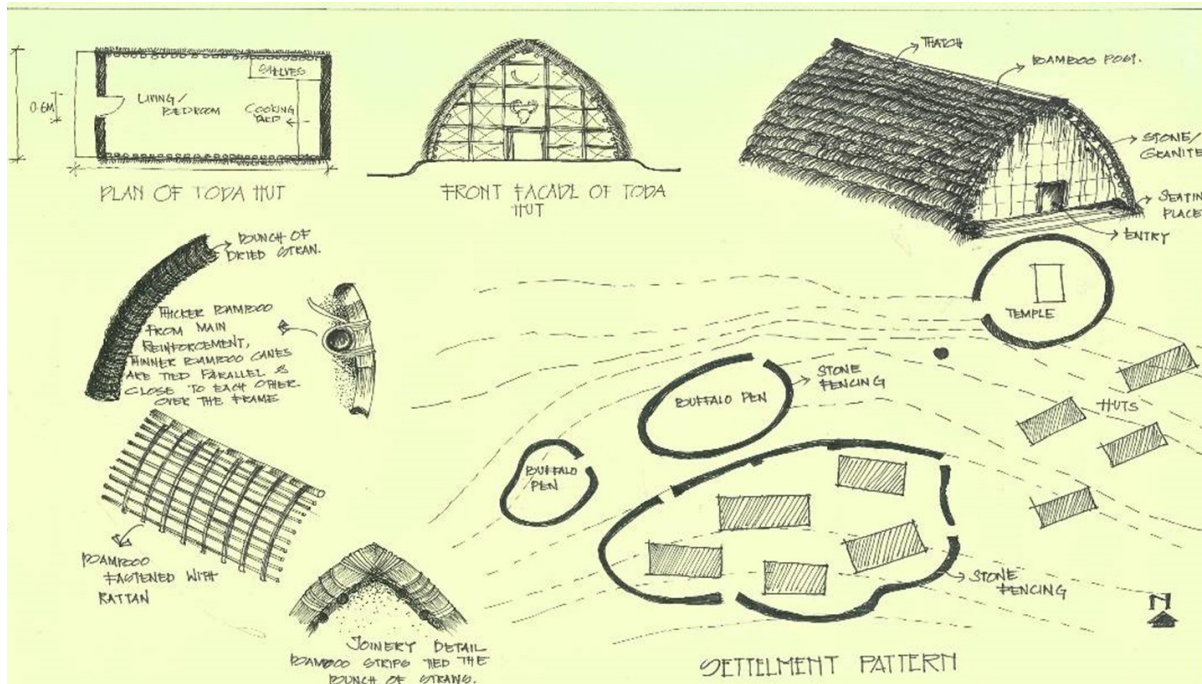 SHELVES
0.6M
LIVING/
BEDROOM
COOKING
YARD
PLAN OF TODA HUT
FRONT FACADE OF TODA
HUT
THATCH
BAMBOO POST.
STONE/
GRANITE
SEATING
PLACE
ENTRY
BUNCH OF
DRIED STRAN.
THICKER BAMBOO
FROM MAIN
REINFORCEMENT,
THINNER BAMBOO CANES
ARE TIED PARALLEL &
CLOSE TO EACH OTHER
OVER THE FRAME
BAMBOO
FASTENED WITH
RATTAN
JOINERY DETAIL
BAMBOO STRIPS TIED THE
BUNCH OF STRAWS.
TEMPLE
STONE
FENCING
BUFFALO PEN
HUTS
BUFFALO
PEN
STONE
FENCING
N
SETTELMENT PATTERN